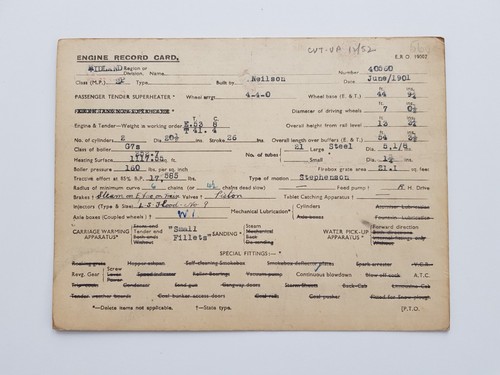 CUT-UP 12/52
ENGINE RECORD CARD. E.R.O. 19002
Region or Division, Name Number 40560
Class (M.P.) 2P Built by Neilson Date June/1901
PASSENGER TENDER SUPERHEATER * Wheel arrgt. 4-4-0 Wheel base (E. & T.) 44 ft. 9½ ins.
Diameter of driving wheels 7 ft. 0½ ins.
L. C.
Engine & Tender—Weights in working order E.53 8 Overall height from rail level 13 ft. ins.
T 41. 4
No. of cylinders 2 Dia. Stroke 26 ins. Overall length over buffers (E. & T.) ft. ins.
Class of boiler G7s No. of tubes 21 Large Steel Dia. 5,1/8 ins.
Heating Surface sq. ft. Small Dia. ins.
Boiler pressure 160 lbs. per sq. inch Firebox grate area 21.1 sq. ft.
Tractive effort at 85% B.P. 17,585 lbs. Type of motion Stephenson
Radius of minimum curve chains (or 4½ chains dead slow) Feed pump † R.H. Drive
Brakes † Steam Valves † Piston Tablet Catching Apparatus †
Injectors (Type & Size) Mechanical Lubrication* Cylinders
Axle boxes (Coupled wheels) † W1 Axleboxes
CARRIAGE WARMING APPARATUS* "Small Fillets" SANDING* Steam WATER PICK-UP APPARATUS* Forward direction
SPECIAL FITTINGS:— *
Hopper ashpan Self-cleaning Smokebox Smokebox deflector plates Spark arrester
Revg. Gear Screw Lever Power Speed indicator Roller Bearings Vacuum pump Continuous blowdown Blow off cock A.T.C.
Condenser Sand gun Gangway doors Storm Sheets Back Cab
Tender weather boards Coal bunker access doors Coal rails Coal pusher Fitted for Snow plough
*—Delete items not applicable. †—State type. [P.T.O.